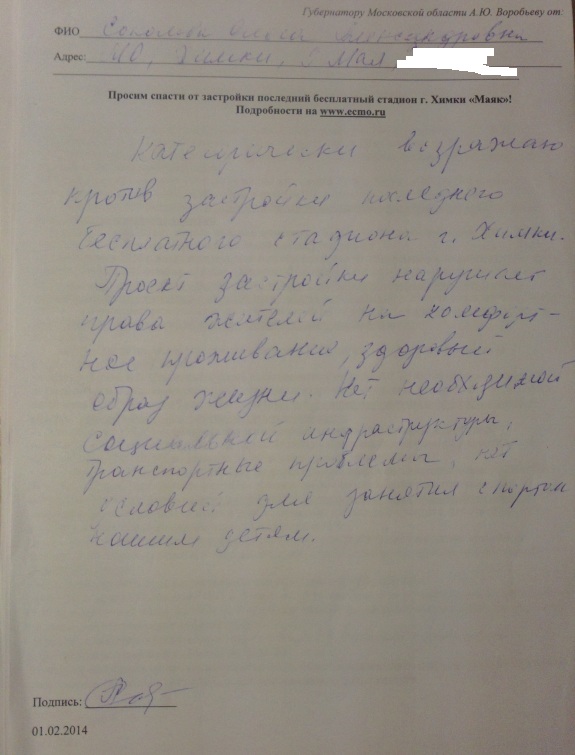 Губернатору Московской области А.Ю. Воробьеву от:
ФИО Александровна
Адрес: МО, Химки, 9 Мая,
Просим спасти от застройки последний бесплатный стадион г. Химки «Маяк»!
Подробности на www.ecmo.ru
Категорически возряжаю
против застройки последнего
бесплатного стадиона г. Химки.
Проект застройки нарушает
права жителей на комфорт-
ное проживание, здоровый
образ жизни. Нет необходимой
социальной инфраструктуры,
транспортные проблемы, нет
условий для занятия спортом
нашим детям.
Подпись:
01.02.2014